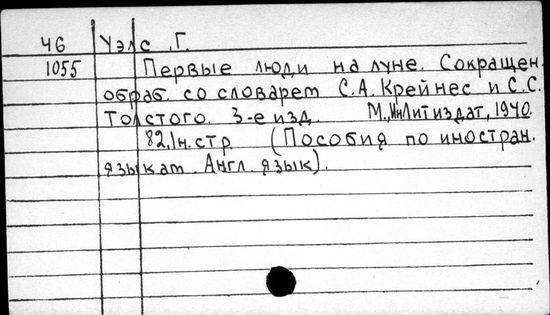 Ч6 Уэлс, Г.
1055 Первые люди на луне. Сокращен.
обраб. со словарем С.А. Крейнес и С.С.
Толстого. 3-е изд. М., ИнЛитиздат, 1940.
82,1н.стр (Пособия по иностран.
языкам. Англ. язык).